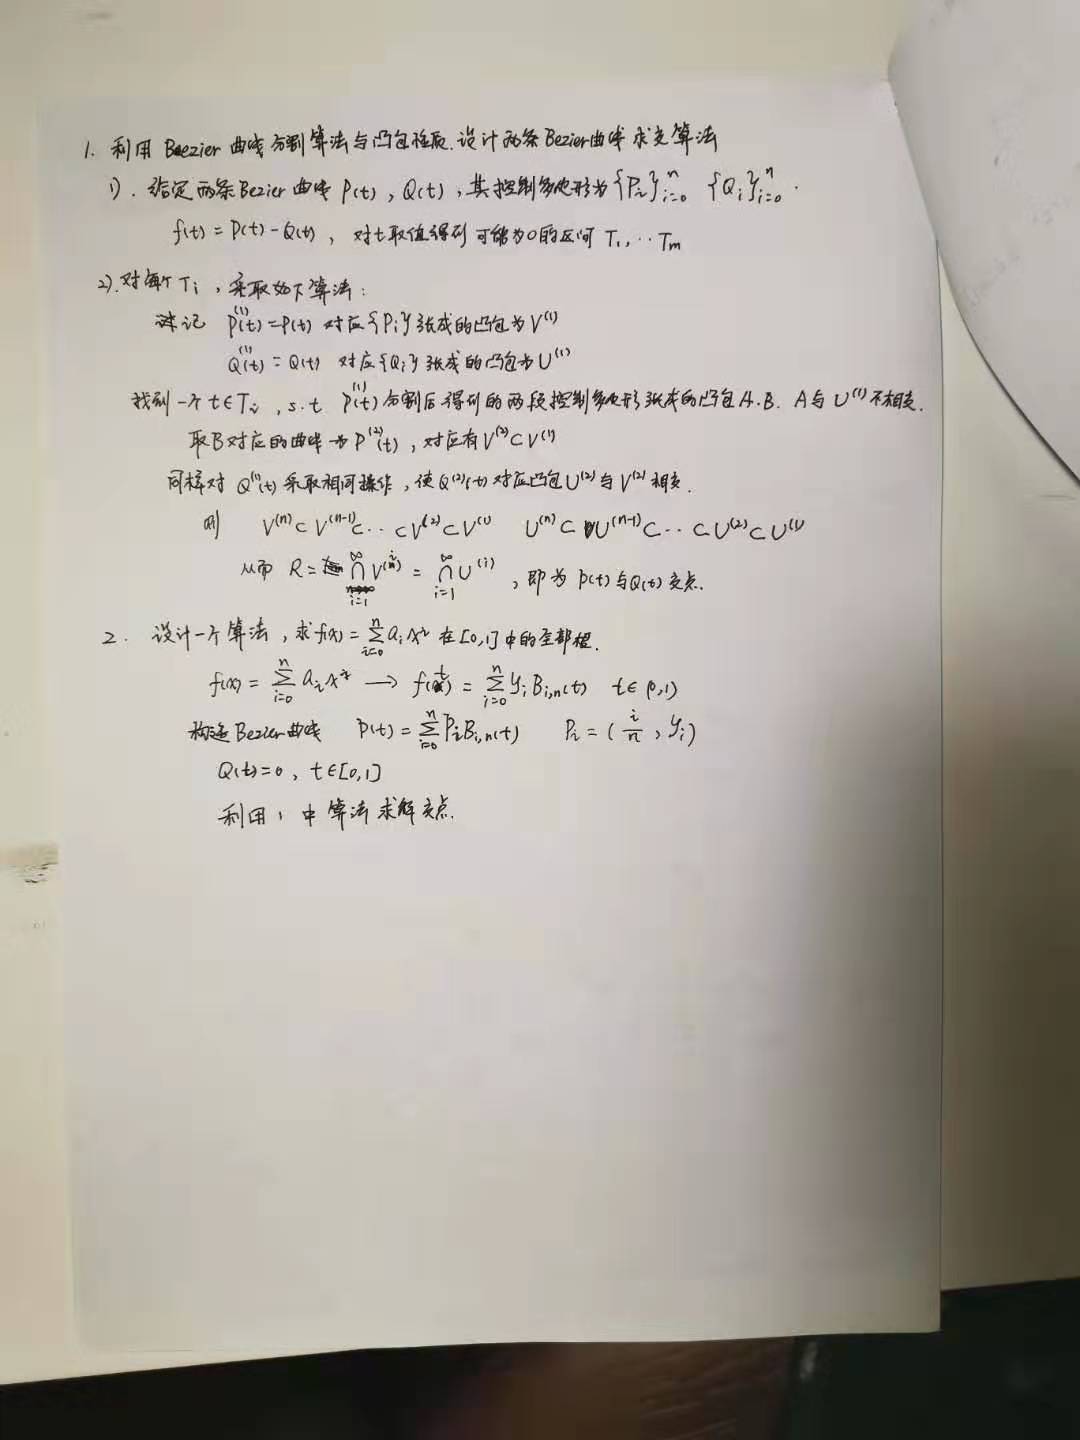 1. 利用 Bezier 曲线分割算法与凸包性质.设计两条Bezier曲线求交算法
1). 给定两条Bezier曲线 P(t), Q(t), 其控制多边形为{Pi}ⁿᵢ₌₀ {Qi}ⁿᵢ₌₀.
f(t) = P(t) - Q(t), 对t取值得到可能为0的区间 T₁, ·· Tm
2).对每个Ti, 采取如下算法:
记 P⁽¹⁾(t)=P(t) 对应{Pi}张成的凸包为V⁽¹⁾
Q⁽¹⁾(t) = Q(t) 对应{Qi}张成的凸包为U⁽¹⁾
找到一个t∈Ti, s.t P⁽¹⁾(t)分割后得到的两段控制多边形张成的凸包A.B. A与U⁽¹⁾不相交.
取B对应的曲线为P⁽²⁾(t), 对应有V⁽²⁾⊂V⁽¹⁾
同样对 Q⁽¹⁾(t) 采取相同操作, 使Q⁽²⁾(t)对应凸包U⁽²⁾与V⁽²⁾相交.
则 V⁽ⁿ⁾⊂V⁽ⁿ⁻¹⁾⊂··⊂V⁽²⁾⊂V⁽¹⁾ U⁽ⁿ⁾⊂U⁽ⁿ⁻¹⁾⊂··⊂U⁽²⁾⊂U⁽¹⁾
从而 R = ∩^∞_{i=1} V⁽ⁱ⁾ = ∩^∞_{i=1} U⁽ⁱ⁾, 即为P(t)与Q(t)交点.
2. 设计一个算法, 求f(x) = Σⁿᵢ₌₀ aᵢxⁱ 在[0,1]中的全部根.
f(x) = Σⁿᵢ₌₀ aᵢxⁱ → f(t) = Σⁿᵢ₌₀ yᵢBi,n(t) t∈(0,1)
构造Bezier曲线 P(t) = Σⁿᵢ₌₀ PᵢBi,n(t) Pi = (i/n, yi)
Q(t)=0, t∈[0,1]
利用1中算法求解交点.